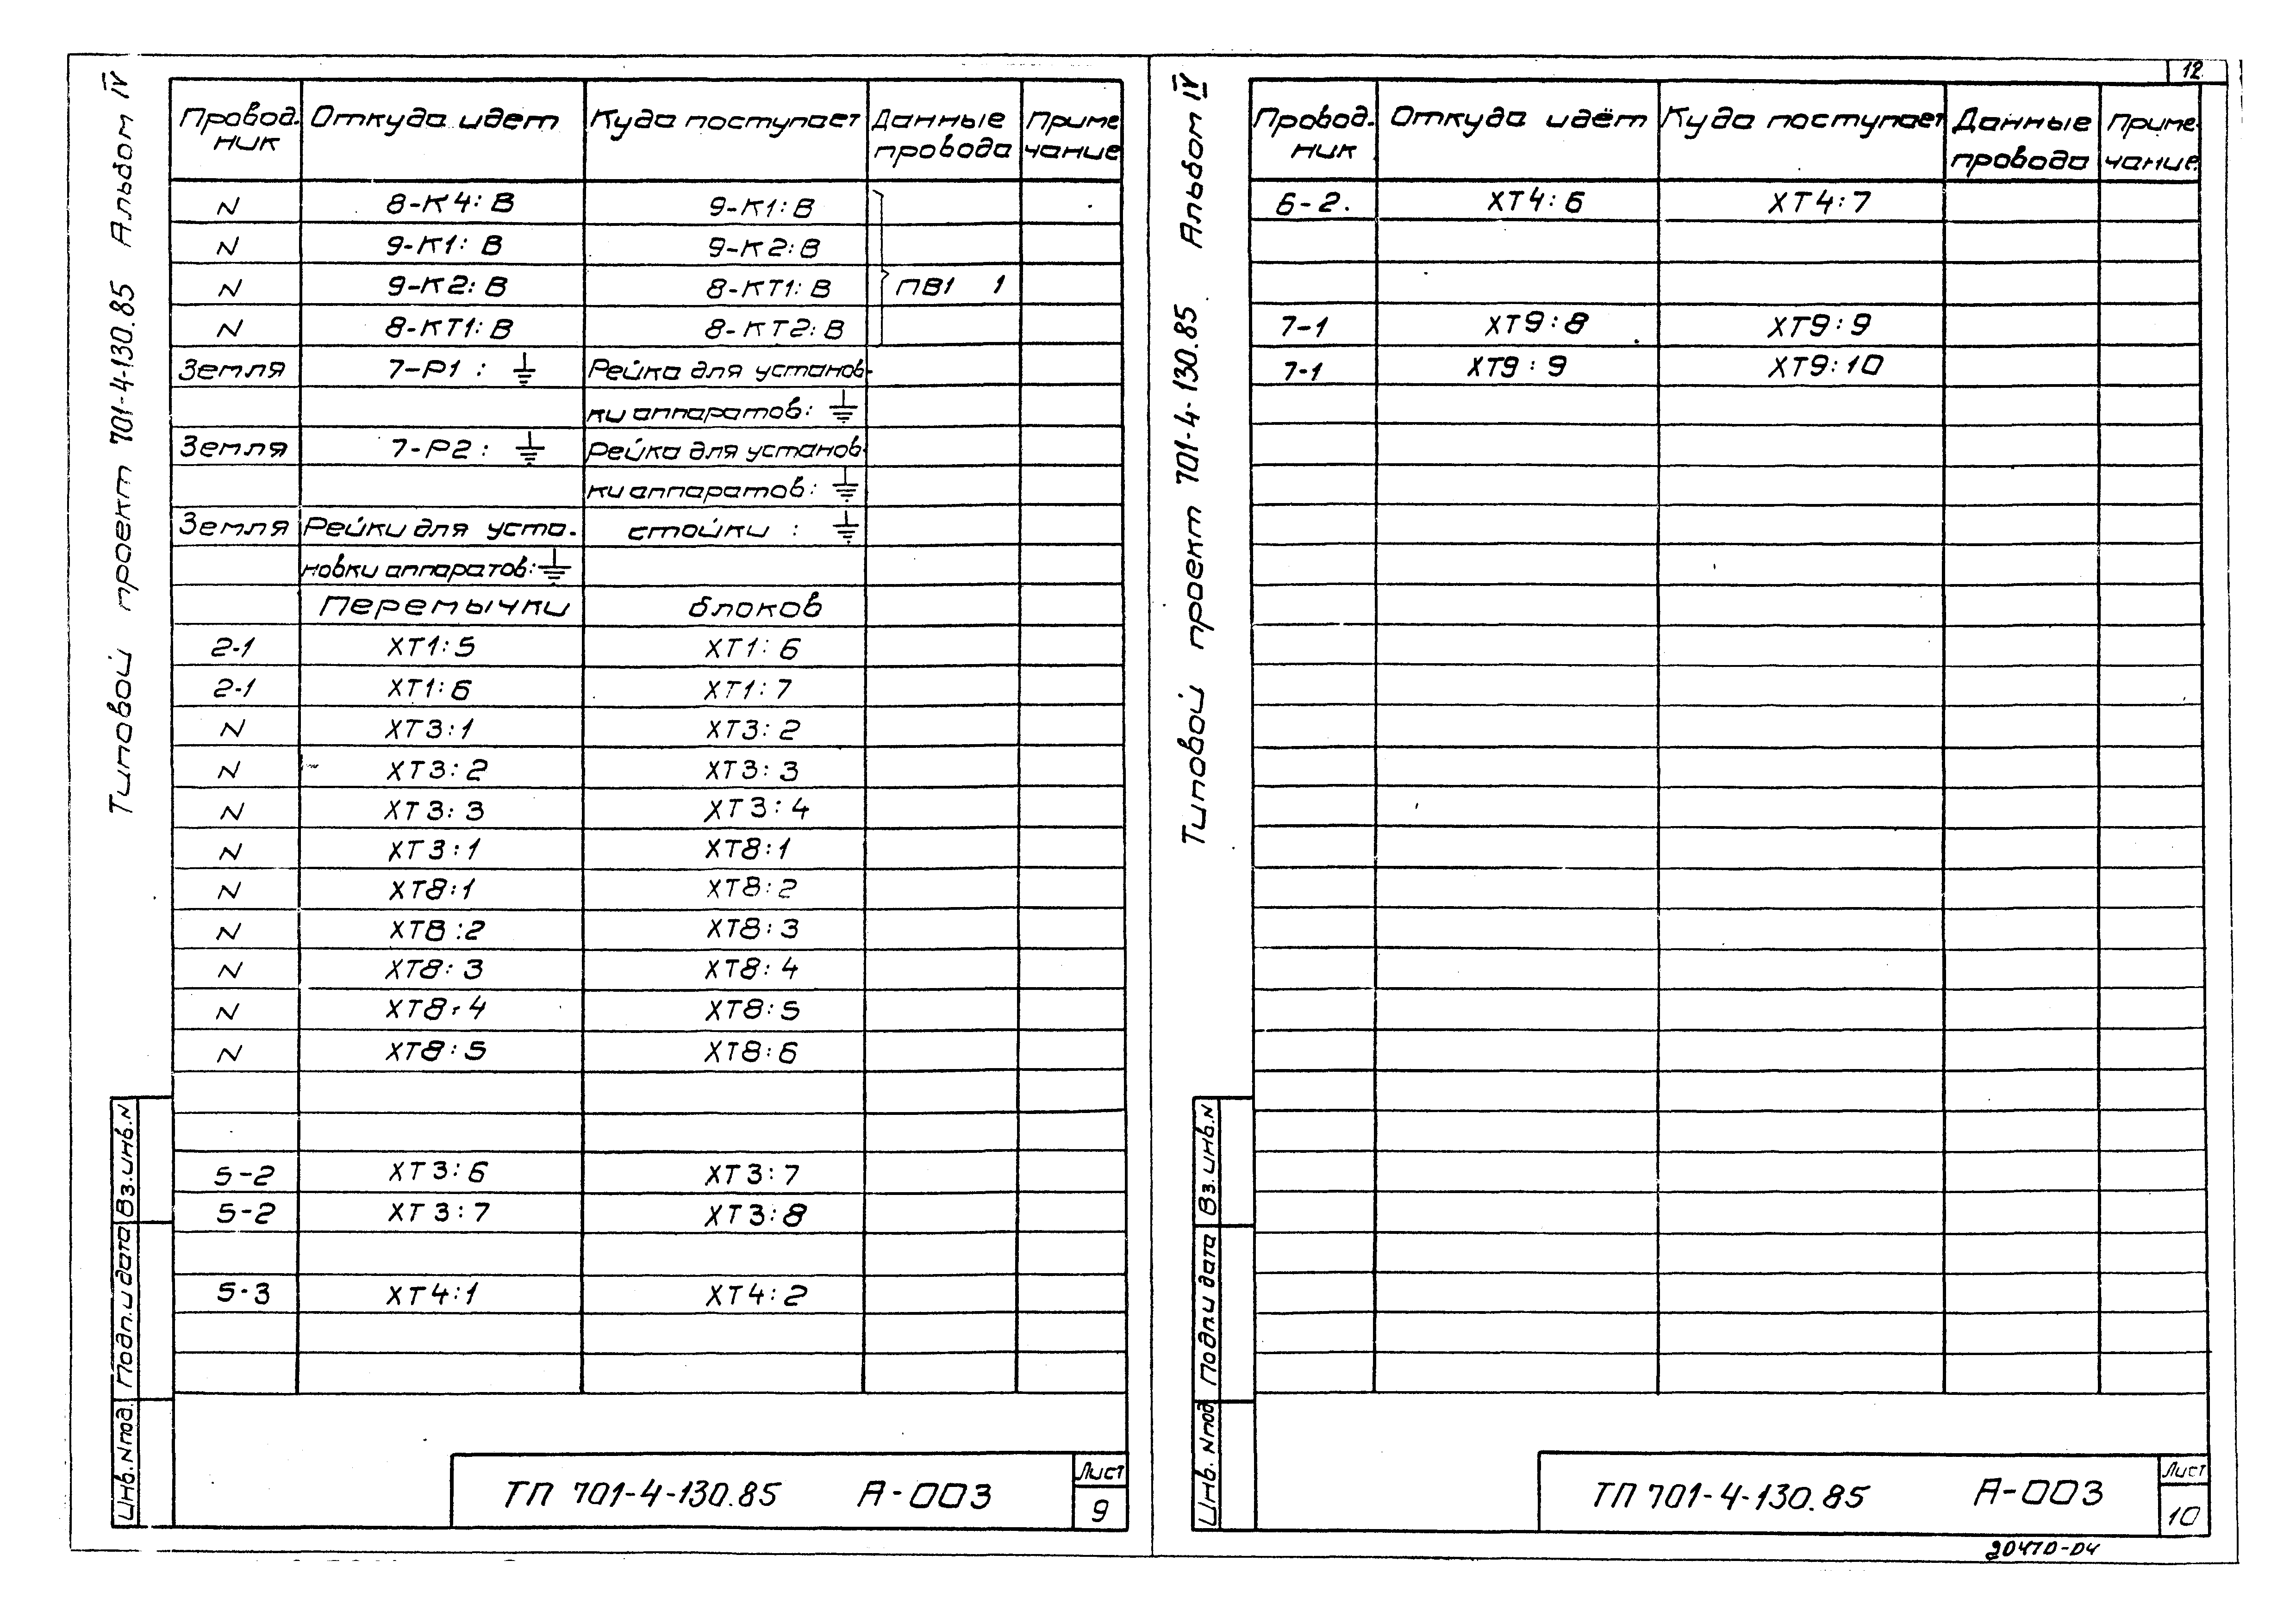 Типовой проект 701-4-130.85 Альбом IV
Провод- Откуда идет Куда поступает Данные Приме
ник провода чание
N 8-К4:В 9-К1:В
N 9-К1:В 9-К2:В
N 9-К2:В 8-КТ1:В ПВ1 1
N 8-КТ1:В 8-КТ2:В
Земля 7-Р1: ⏚ Рейка для установ-
ки аппаратов: ⏚
Земля 7-Р2: ⏚ Рейка для установ-
ки аппаратов: ⏚
Земля Рейки для уста- стойки: ⏚
новки аппаратов: ⏚
Перемычки блоков
2-1 ХТ1:5 ХТ1:6
2-1 ХТ1:6 ХТ1:7
N ХТ3:1 ХТ3:2
N ХТ3:2 ХТ3:3
N ХТ3:3 ХТ3:4
N ХТ3:1 ХТ8:1
N ХТ8:1 ХТ8:2
N ХТ8:2 ХТ8:3
N ХТ8:3 ХТ8:4
N ХТ8:4 ХТ8:5
N ХТ8:5 ХТ8:6
5-2 ХТ3:6 ХТ3:7
5-2 ХТ3:7 ХТ3:8
5-3 ХТ4:1 ХТ4:2
Инв.Nпод. Подп.и дата Вз.инв.N
ТП 701-4-130.85 А-003 Лист
9
12
Типовой проект 701-4-130.85 Альбом IV
Провод- Откуда идёт Куда поступает Данные Приме-
ник провода чание
6-2. ХТ4:6 ХТ4:7
7-1 ХТ9:8 ХТ9:9
7-1 ХТ9:9 ХТ9:10
Инв. Nпод Подп.и дата Вз.инв.N
ТП 701-4-130.85 А-003 Лист
10
20470-04